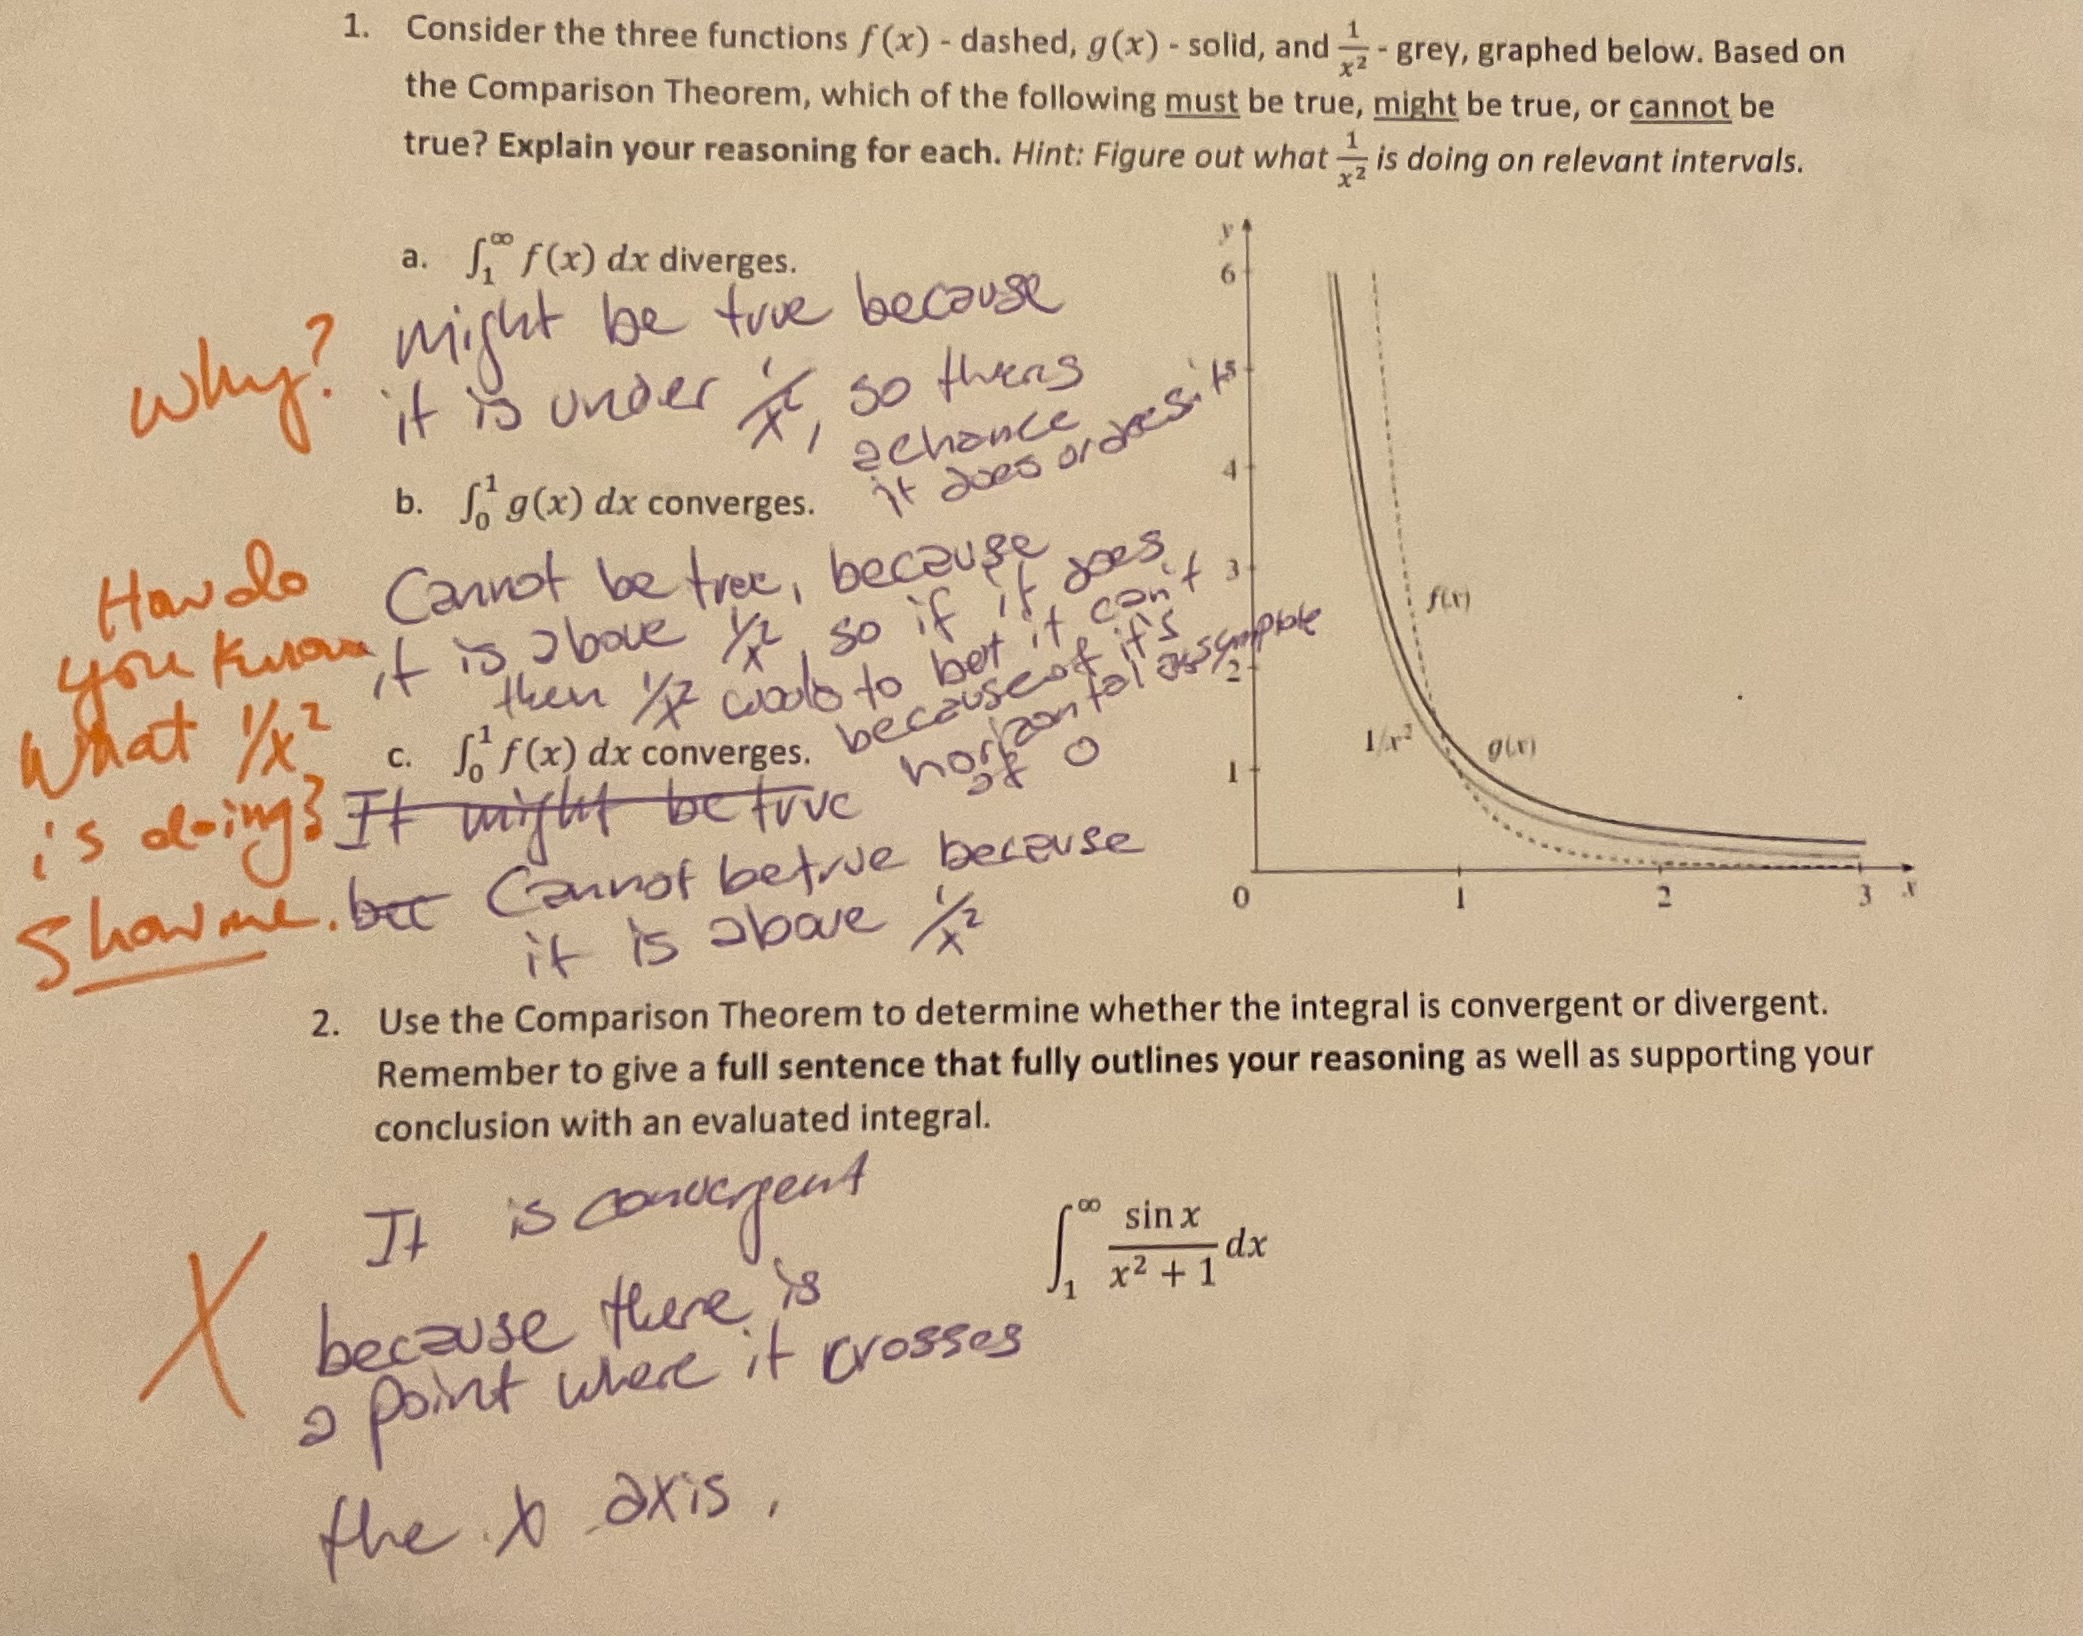 1. Consider the three functions f(x) - dashed, g(x) - solid, and 1/x² - grey, graphed below. Based on
the Comparison Theorem, which of the following must be true, might be true, or cannot be
true? Explain your reasoning for each. Hint: Figure out what 1/x² is doing on relevant intervals.
a. ∫₁^∞ f(x) dx diverges.
might be true because
it is under 1/x², so
a chance
it does or
why?
b. ∫₀¹ g(x) dx converges.
Cannot be true, because
it is above 1/x², so if it does
then 1/x² to but it can't
because of it's
horizontal
at 0
How do
you know
what 1/x²
is doing?
Show me.
c. ∫₀¹ f(x) dx converges.
It might be true
bec Cannot be true because
it is above 1/x²
y
6
5
4
3
2
1
0
1
2
3
x
f(x)
1/x²
g(x)
2. Use the Comparison Theorem to determine whether the integral is convergent or divergent.
Remember to give a full sentence that fully outlines your reasoning as well as supporting your
conclusion with an evaluated integral.
∫₁^∞ sin x / (x² + 1) dx
X
It is convergent
because there is
a point where it crosses
the x axis.